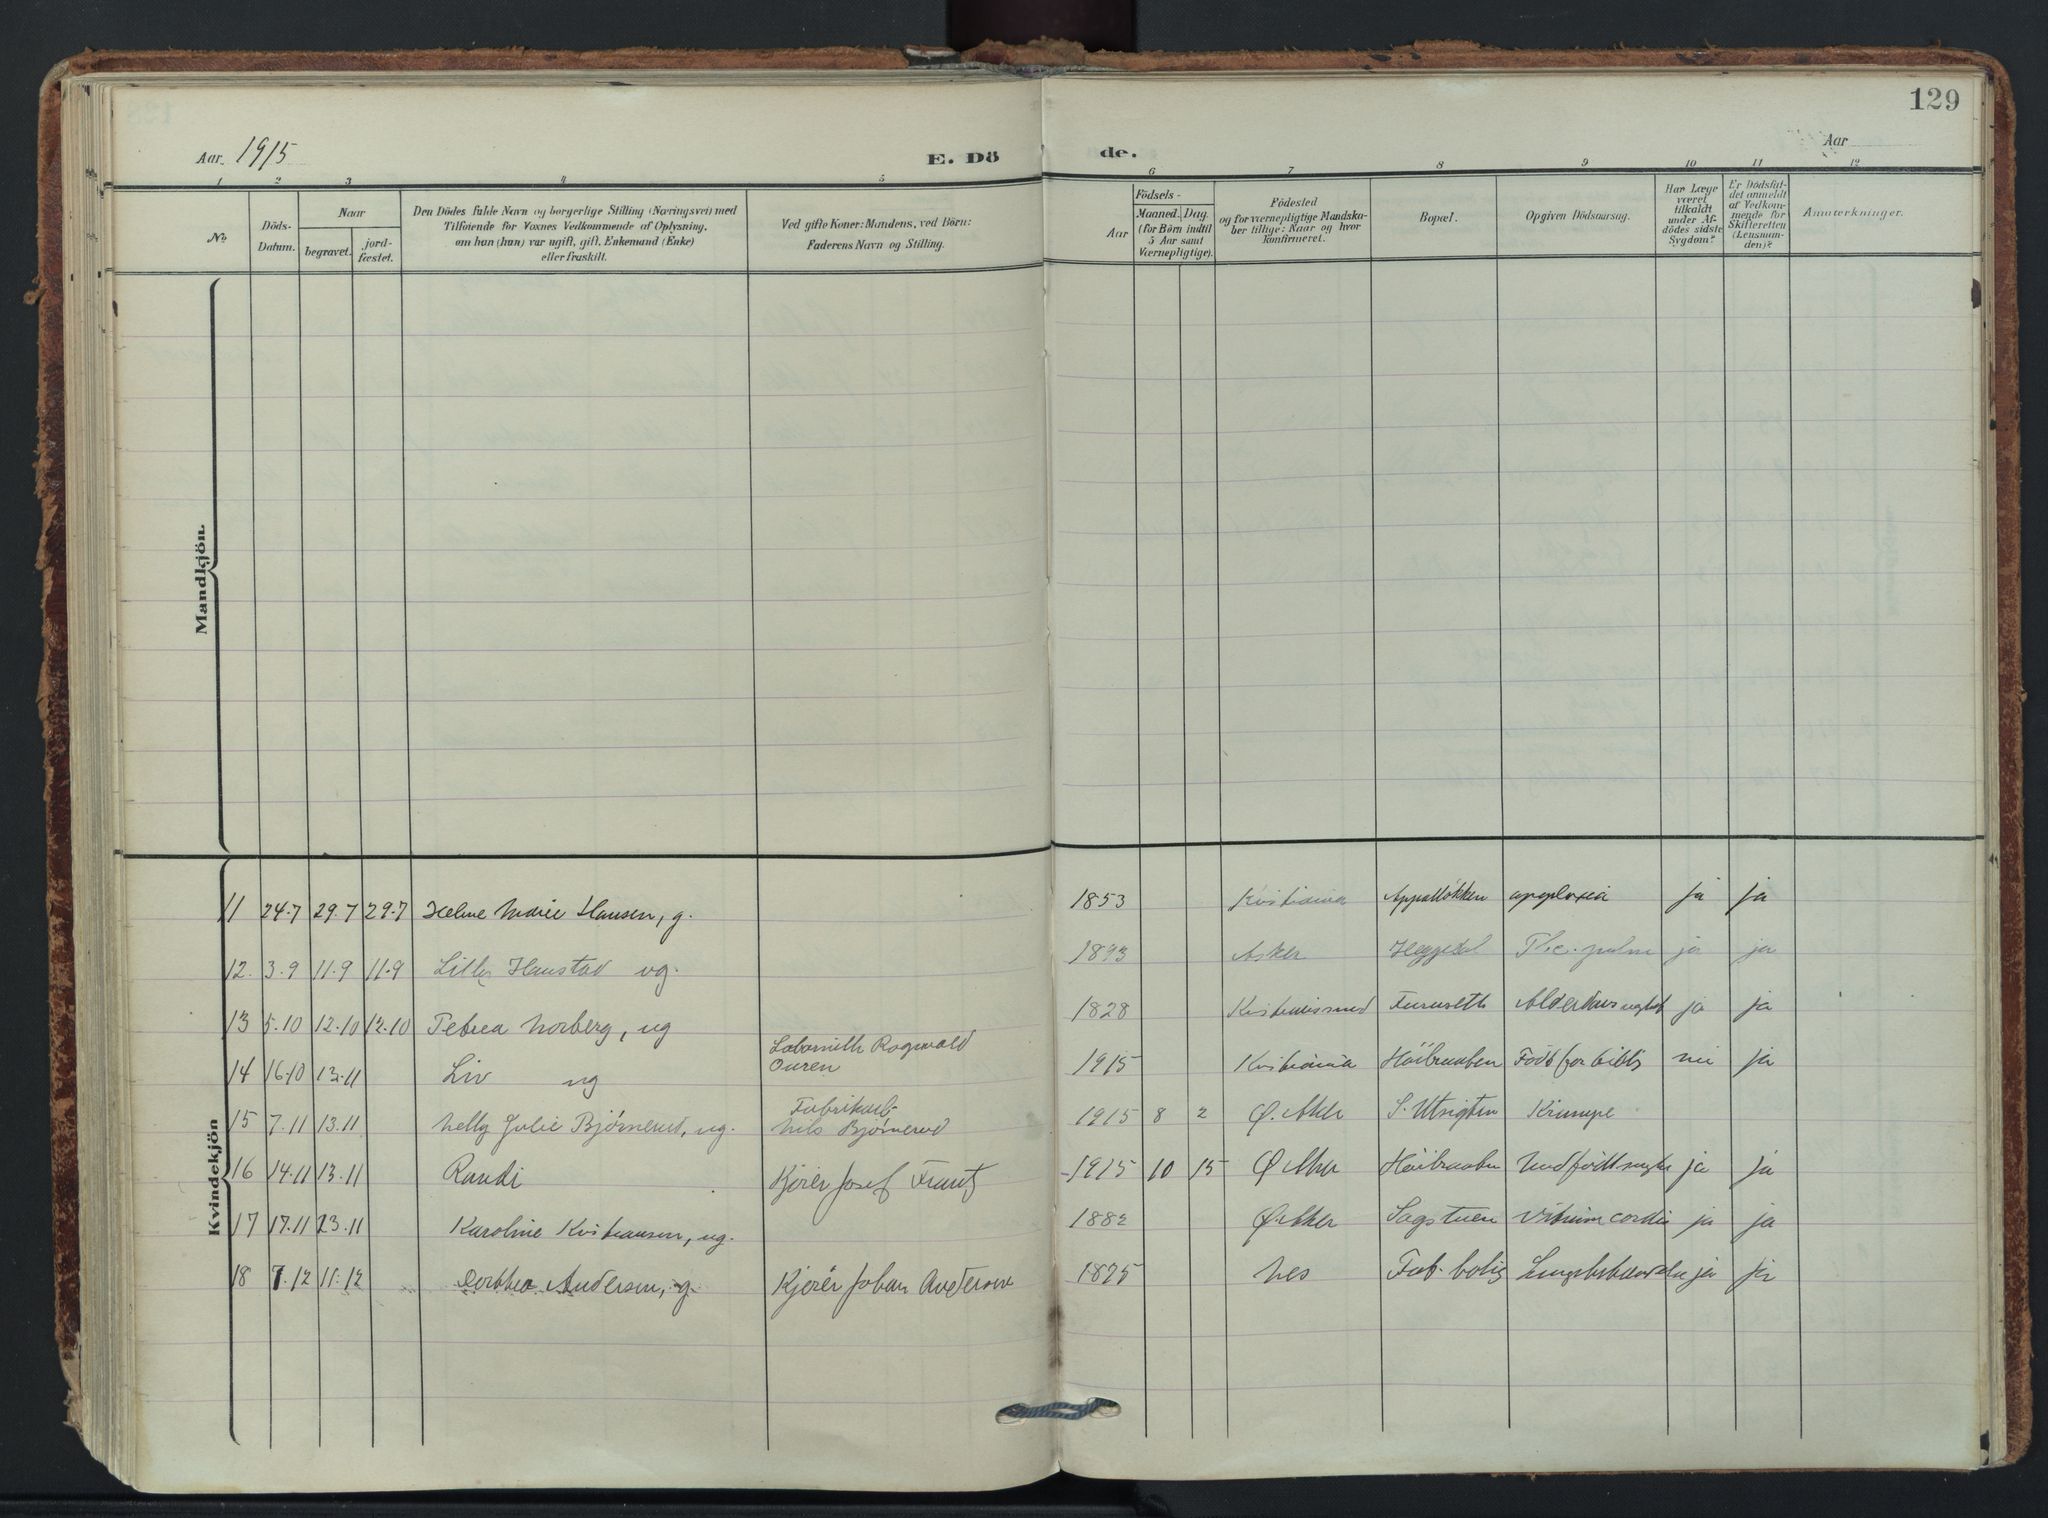 129
Aar 1915
E. Döde.
Aar
1 2 3 4 5 6 7 8 9 10 11 12
No
Döds-Datum.
Naar
begravet.
jord-fæstet.
Den Dödes fulde Navn og borgerlige Stilling (Næringsvei) med
Tilföiende for Voxnes Vedkommende af Oplysning,
om han (hun) var ugift, gift, Enkemand (Enke)
eller fraskilt.
Ved gifte Koner: Mandens, ved Börn:
Faderens Navn og Stilling.
Födsels-
Aar
Maaned. Dag.
(for Börn indtil
5 Aar samt
Værnepligtige).
Födested
og for værnepligtige Mandska-
ber tillige: Naar og hvor
konfirmeret.
Bopæl.
Opgiven Dödsaarsag.
Har Læge
været
tilkaldt
under Af-
dödes sidste
Sygdom?
Er Dödsfal-
det anmeldt
af Vedkom-
mende for
Skifteretten
(Lensman-
den)?
Anmærkninger.
Mandkjön.
Kvindekjön
11 24.7 29.7 29.7 Helene Marie Hansen, g. 1853 Kristiania apoplexia ja ja
12. 3.9 11.9 11.9 Lilly Hanstad ug. 1893 Asker Heggedal Tbc. pulm ja ja
13 5.10 12.10 12.10 Petrea Norberg, ug 1828 Kristianssund Furuseth ja ja
14 16.10 13.11 Liv ug Ragnvald
Ouren 1915 Kristiania Höibraaten Födt for tidlig nei ja
15 7.11 13.11 Nelly Julie Bjørnerud, ug. Fabrikarb.
Nils Bjørnerud 1915 8 2 Ø. Aker S. Utsigten Krampe
16 14.11 13.11 Randi Kjører Josef Frantz 1915 10 15 Ø Aker Höibraaten ja ja
17 17.11 23.11 Karoline Kristiansen, ug. 1882 Ø. Aker Sagstuen Vitium cordis ja ja
18 7.12 11.12 Dorthea Andersen, g. Kjører Johan Andersen 1875 Nes Fab. bolig ja ja